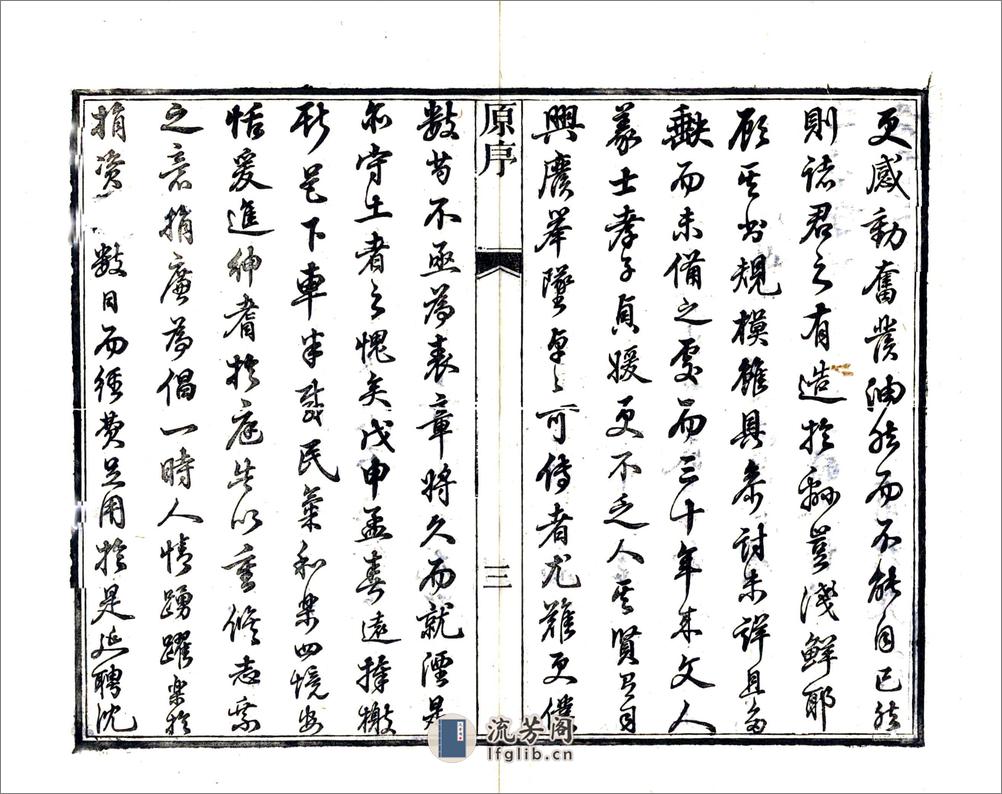 更感動奮發油然而不能自已然
則諸君之有造於邑豈淺鮮耶
顧其書規模雖具參討未詳且多
缺而未備之處而三十年來文人
義士孝子貞媛更不乏人其賢有司
興廢舉墜卓卓可傳者尤難更僕
原序
三
數苟不亟為表章將久而就湮是
亦守土者之愧矣戊申孟春遠捧檄
斯邑下車半載民氣和樂四境安
恬爰進紳耆於庭告以重修志乘
之意捐廉為倡一時人情踴躍樂於
捐資 數日而經費足用於是延聘沈
流芳阁
lfglib.cn